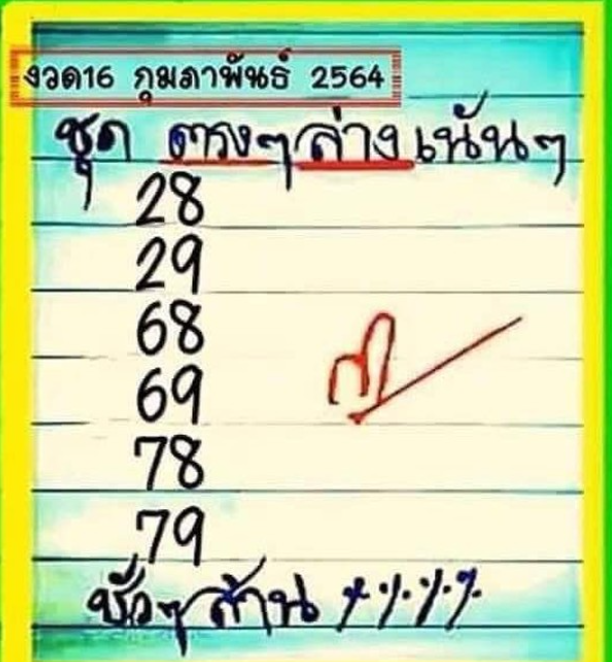 งวด16 กุมภาพันธ์ 2564
ชุด ตรงๆล่างเน้นๆ
28
29
68
69
78
79
ชัวๆล้าน %%%